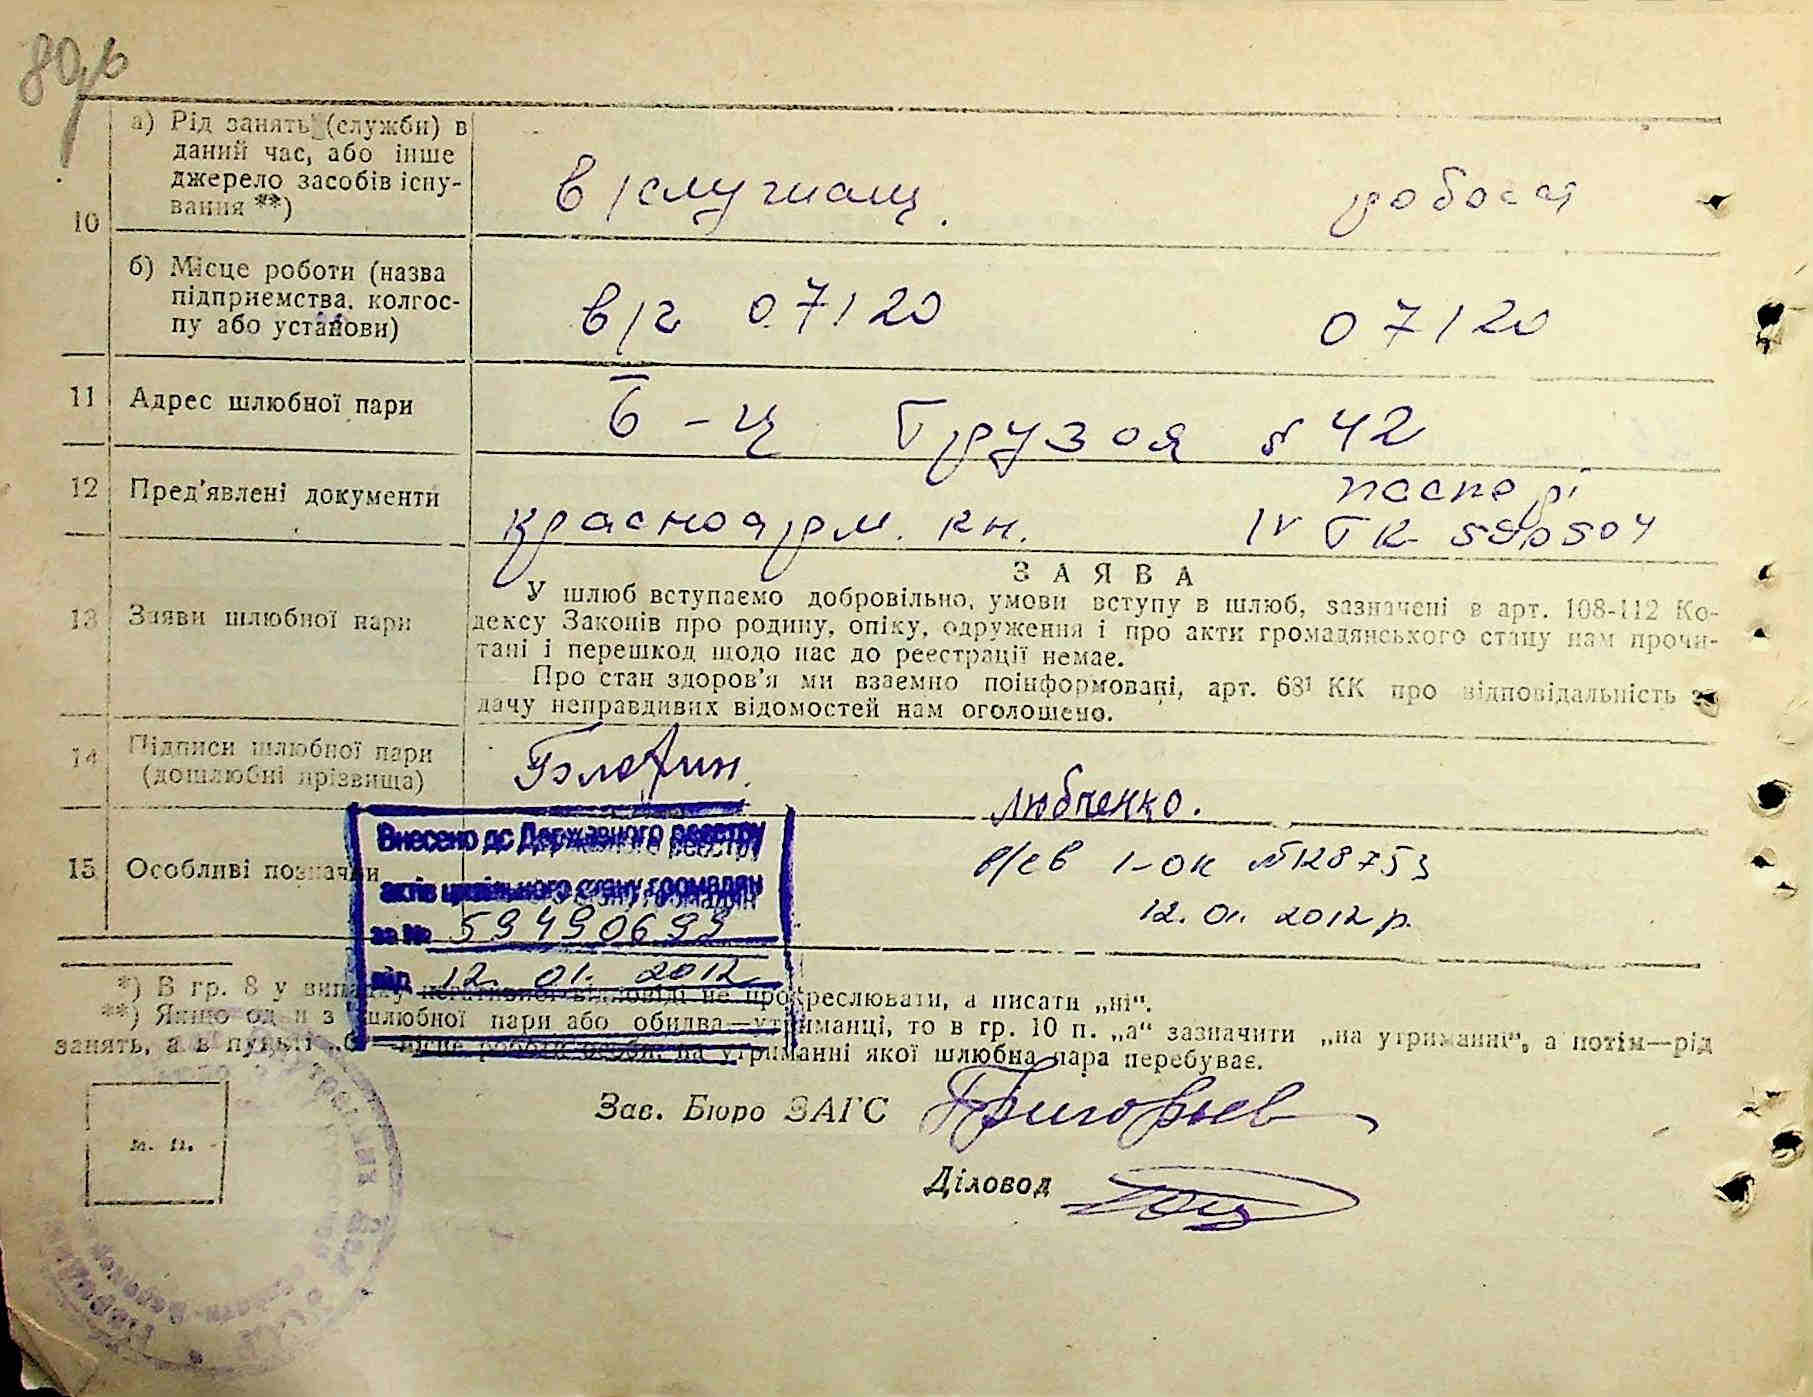 10
а) Рід занять (служби) в
даний час, або інше
джерело засобів існу-
вання **)
в/служащ.
робоча
б) Місце роботи (назва
підприємства, колгос-
пу або установи)
в/ч 07120
07120
11
Адрес шлюбної пари
Б-Ц Грузоя № 42
12
Пред'явлені документи
красноарм. кн.
паспорт
IV ГК 590504
ЗАЯВА
13
Заяви шлюбної пари
У шлюб вступаємо добровільно, умови вступу в шлюб, зазначені в арт. 108-112 Ко-
дексу Законів про родину, опіку, одруження і про акти громадянського стану нам прочи-
тані і перешкод щодо нас до реєстрації немає.
Про стан здоров'я ми взаємно поінформовані, арт. 68¹ КК про відповідальність за
дачу неправдивих відомостей нам оголошено.
14
Підписи шлюбної пари
(дошлюбні прізвища)
Любченко.
15
Особливі позначки
Внесено до Державного реєстру
актів цивільного стану громадян
за № 59490699
від 12.01.2012
12.01.2012 р.
*) В гр. 8 у випадку негативної відповіді не прокреслювати, а писати „ні“.
**) Якщо один з шлюбної пари або обидва—утриманці, то в гр. 10 п. „а“ зазначити „на утриманні“, а потім—рід
занять, а в пункті „б“—місце роботи особи, на утриманні якої шлюбна пара перебуває.
Зав. Бюро ЗАГС Григорьев
м. п.
Діловод